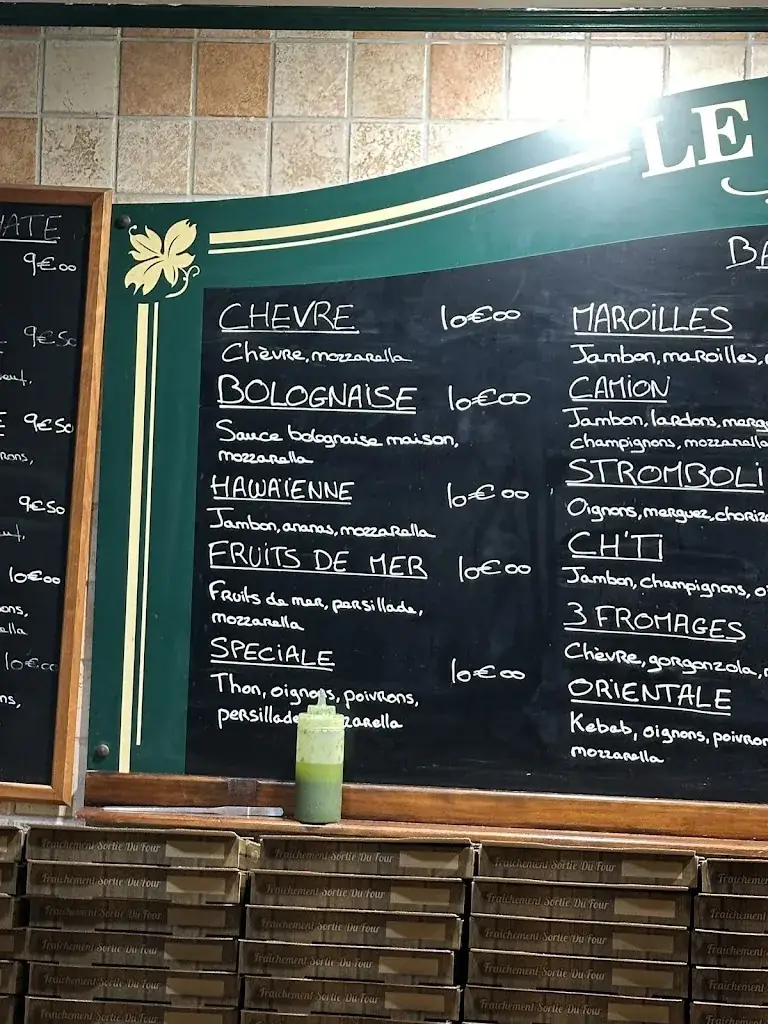 LE
9€00
9€50
9€50
rons,
9€50
10€00
10€00
CHEVRE 10€00
Chèvre, mozzarella
BOLOGNAISE 10€00
Sauce bolognaise maison,
mozzarella
HAWAÏENNE 10€00
Jambon, ananas, mozzarella
FRUITS DE MER 10€00
Fruits de mer, persillade,
mozzarella
SPECIALE 10€00
Thon, oignons, poivrons,
persillade, mozzarella
MAROILLES
Jambon, maroilles,
CAMION
Jambon, lardons,
champignons, mozzarella
STROMBOLI
Oignons, merguez,
CH'TI
Jambon, champignons,
3 FROMAGES
Chèvre, gorgonzola,
ORIENTALE
Kebab, oignons,
mozzarella
Fraîchement Sortie Du Four
Fraîchement Sortie Du Four
Fraîchement Sortie Du Four
Fraîchement Sortie Du Four
Fraîchement Sortie Du Four
Fraîchement Sortie Du Four
Fraîchement Sortie Du Four
Fraîchement Sortie Du Four
Fraîchement Sortie Du Four
Fraîchement Sortie Du Four
Fraîchement Sortie Du Four
Fraîchement Sortie Du Four
Fraîchement Sortie Du Four
Fraîchement Sortie Du Four
Fraîchement Sortie Du Four
Fraîchement Sortie Du Four